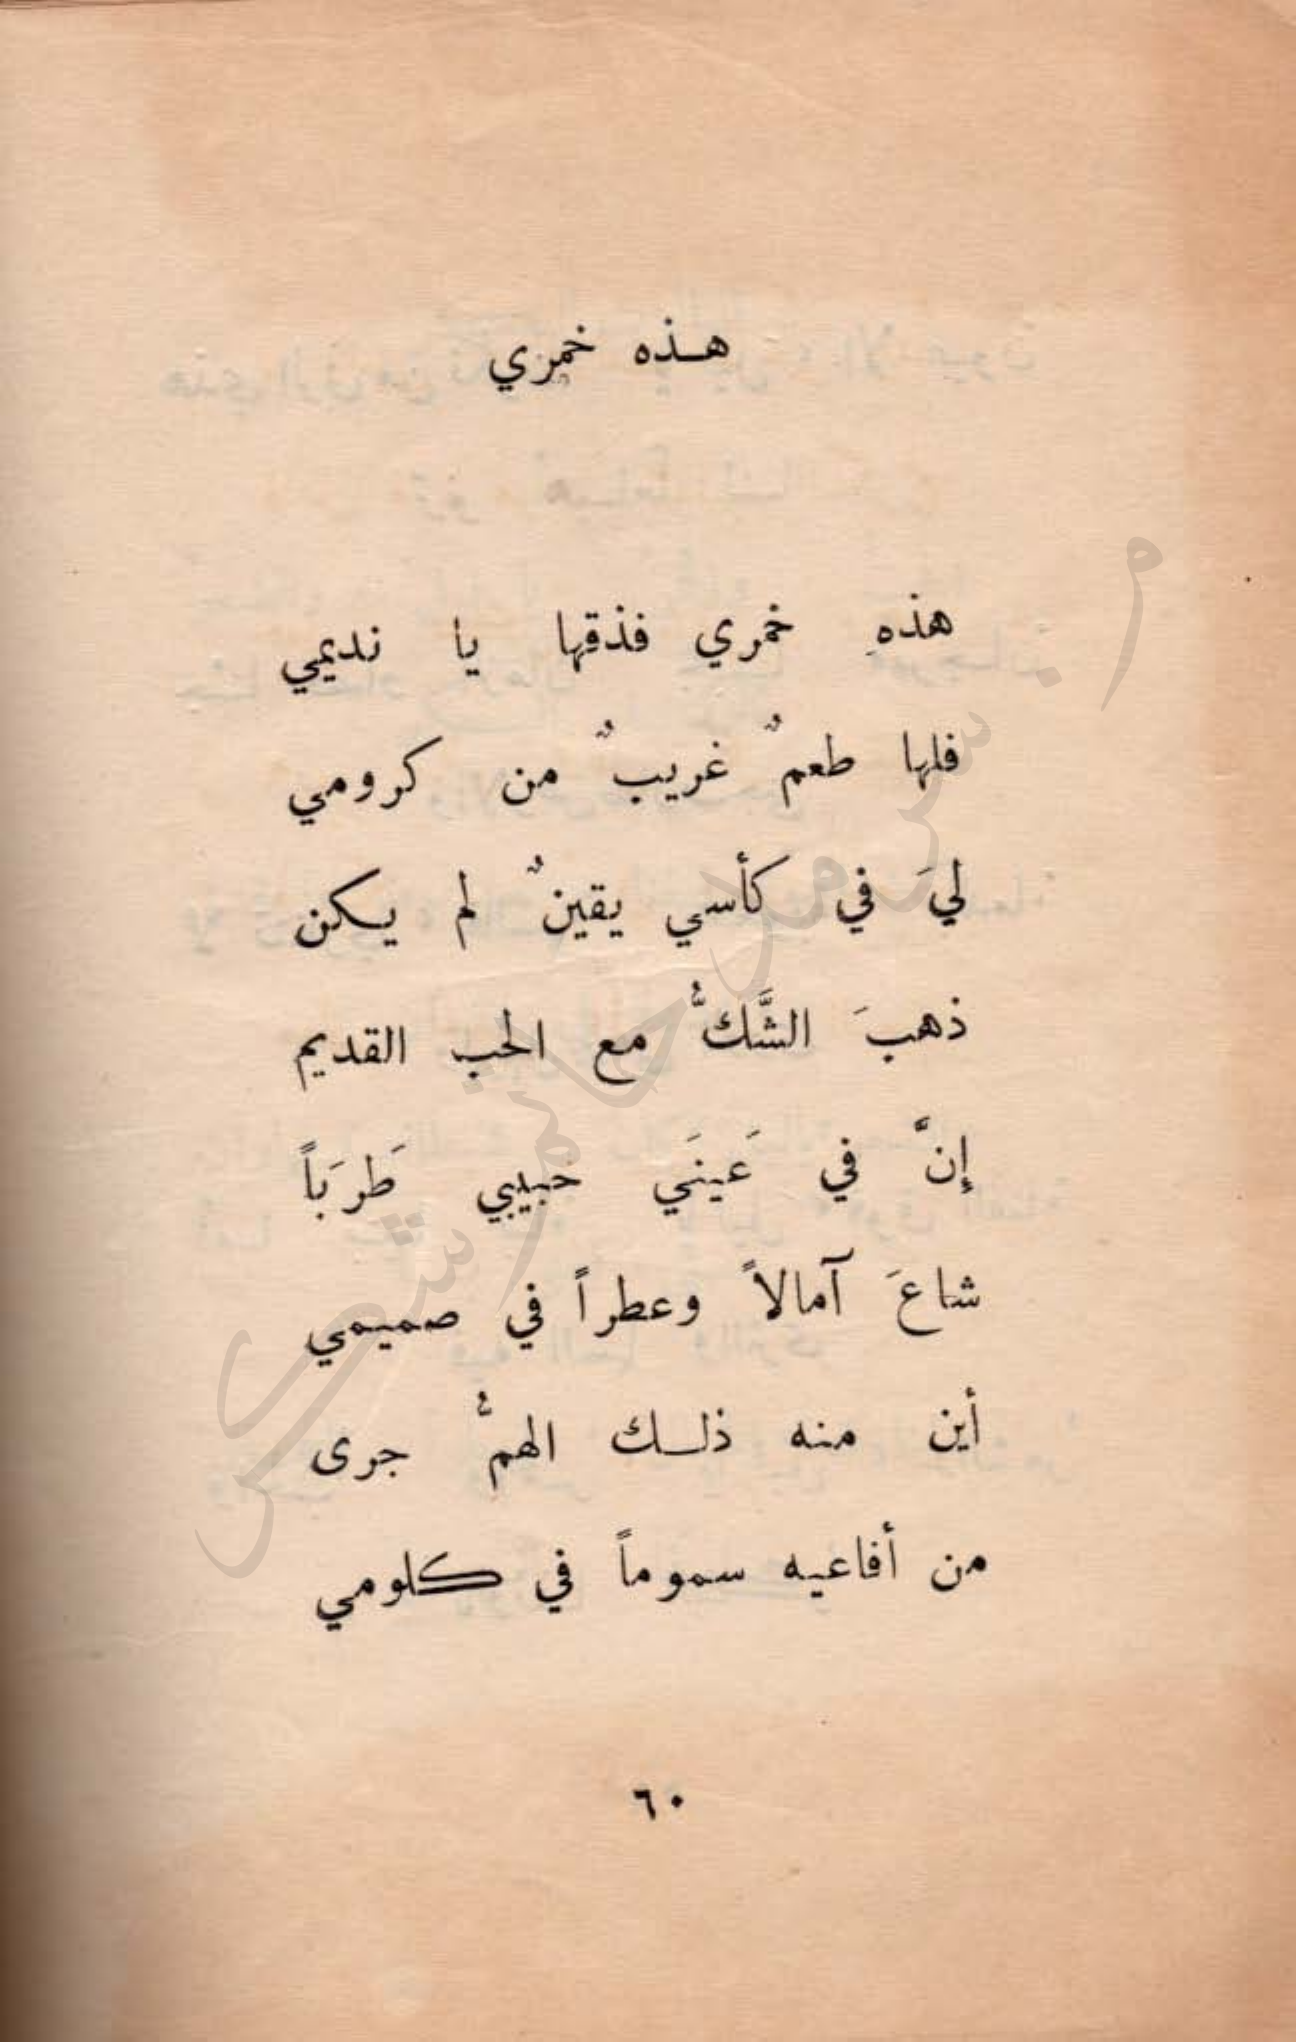 هـذه خمري
هذهِ خمري فذقها يا نديمي
فلها طعمٌ غريبٌ من كرومي
ليَ في كأسي يقينٌ لم يكن
ذهبَ الشَّكُّ مع الحب القديم
إنَّ في عَينَي حبيبي طَرَباً
شاعَ آمالاً وعطراً في صميمي
أين منه ذلـك الهمُّ جرى
من أفاعيه سموماً في كلومي
م. سرمد حاتم شكر
٦٠